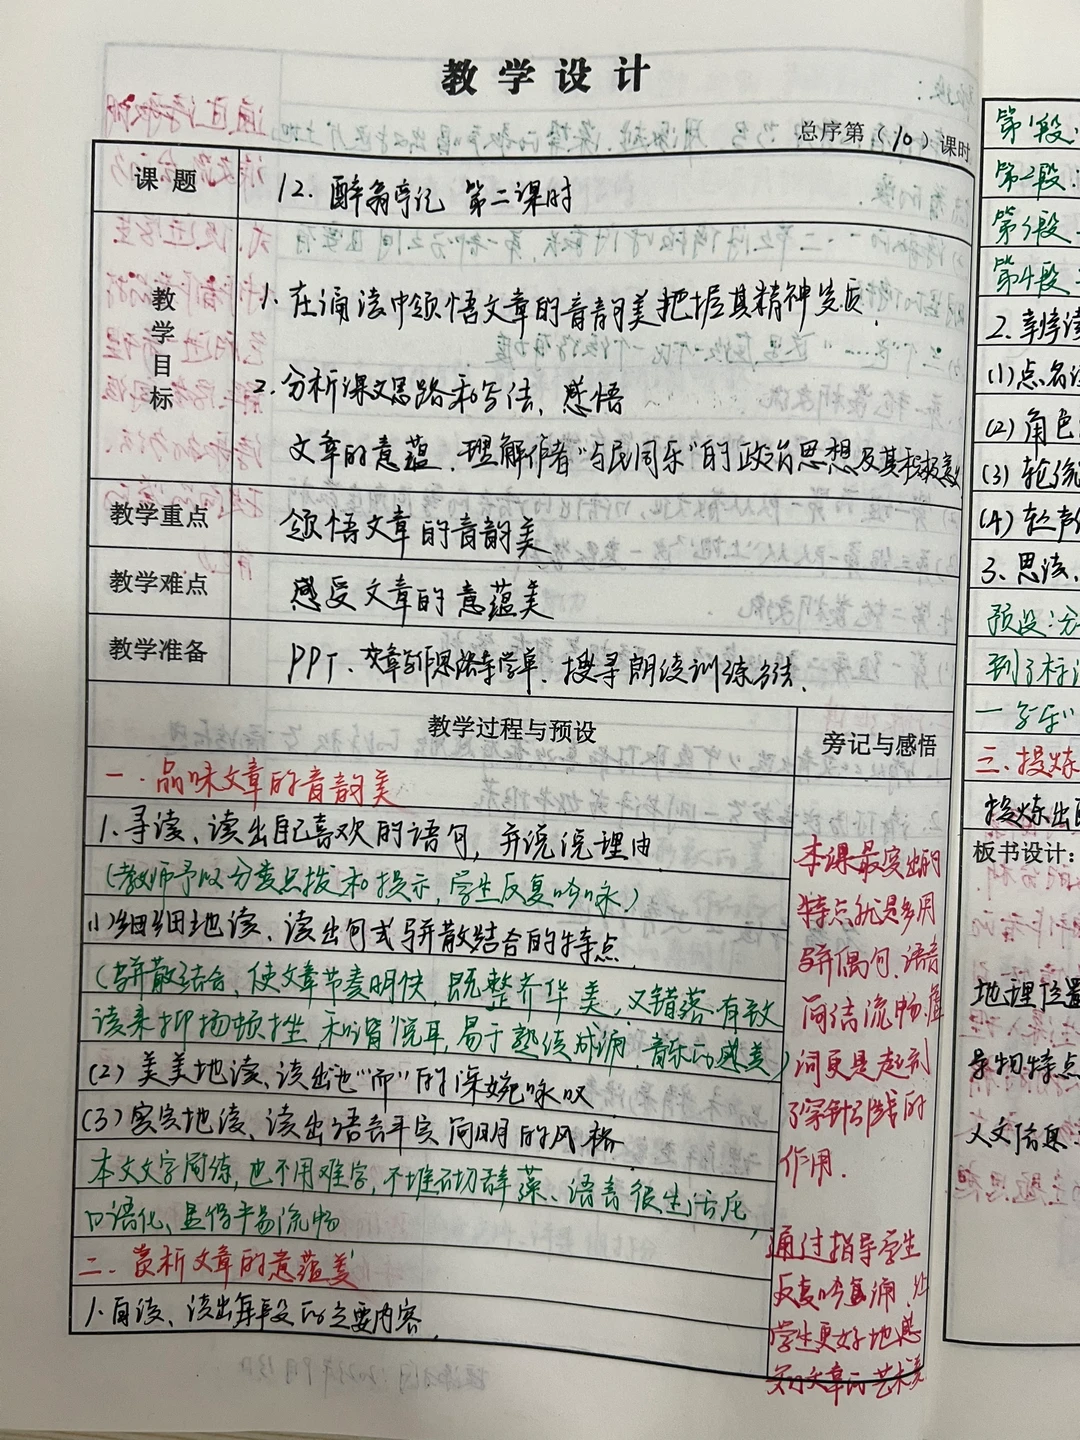 教学设计
总序第（10）课时
课题
12.醉翁亭记 第二课时
教学目标
1.在诵读中领悟文章的音韵美把握其精神实质.
2.分析课文思路和写法、感悟
文章的意蕴.理解作者"与民同乐"的政治思想及其积极意义
教学重点
领悟文章的音韵美
教学难点
感受文章的意蕴美
教学准备
PPT、 搜寻朗读训练方法.
教学过程与预设
旁记与感悟
一.品味文章的音韵美
1.寻读、读出自己喜欢的语句,并说说理由
(教师予以分类点拨和提示,学生反复吟咏)
(1)细细地读、读出句式骈散结合的特点.
(骈散结合、使文章节奏明快,既整齐华美,又错落有致
读来抑扬顿挫,和谐悦耳,易于熟读成诵.音乐的感美)
(2)美美地读、读出"也""而"的深婉咏叹
(3)实实地读、读出语言平实简明的风格.
本文文字简练,也不用难字,不堆砌辞藻、语言很生活化,
口语化、显得平易流畅
二.赏析文章的意蕴美
1.自读、读出每段的主要内容.
本课最突出的
特点就是多用
骈偶句.语言
简洁流畅.虚
词更是起到
了穿针引线的
作用.
通过指导学生
反复吟诵,让
学生更好地感
受文章的艺术美
第1段:
第2段:
第3段
第4段
2.
(1)点名读
(2)角色
(3)轮流
(4)轻声
3.思读、
预设:分
到了
一"乐"
三.提炼
提炼出
板书设计:
地理位置
景物特点
人文信息